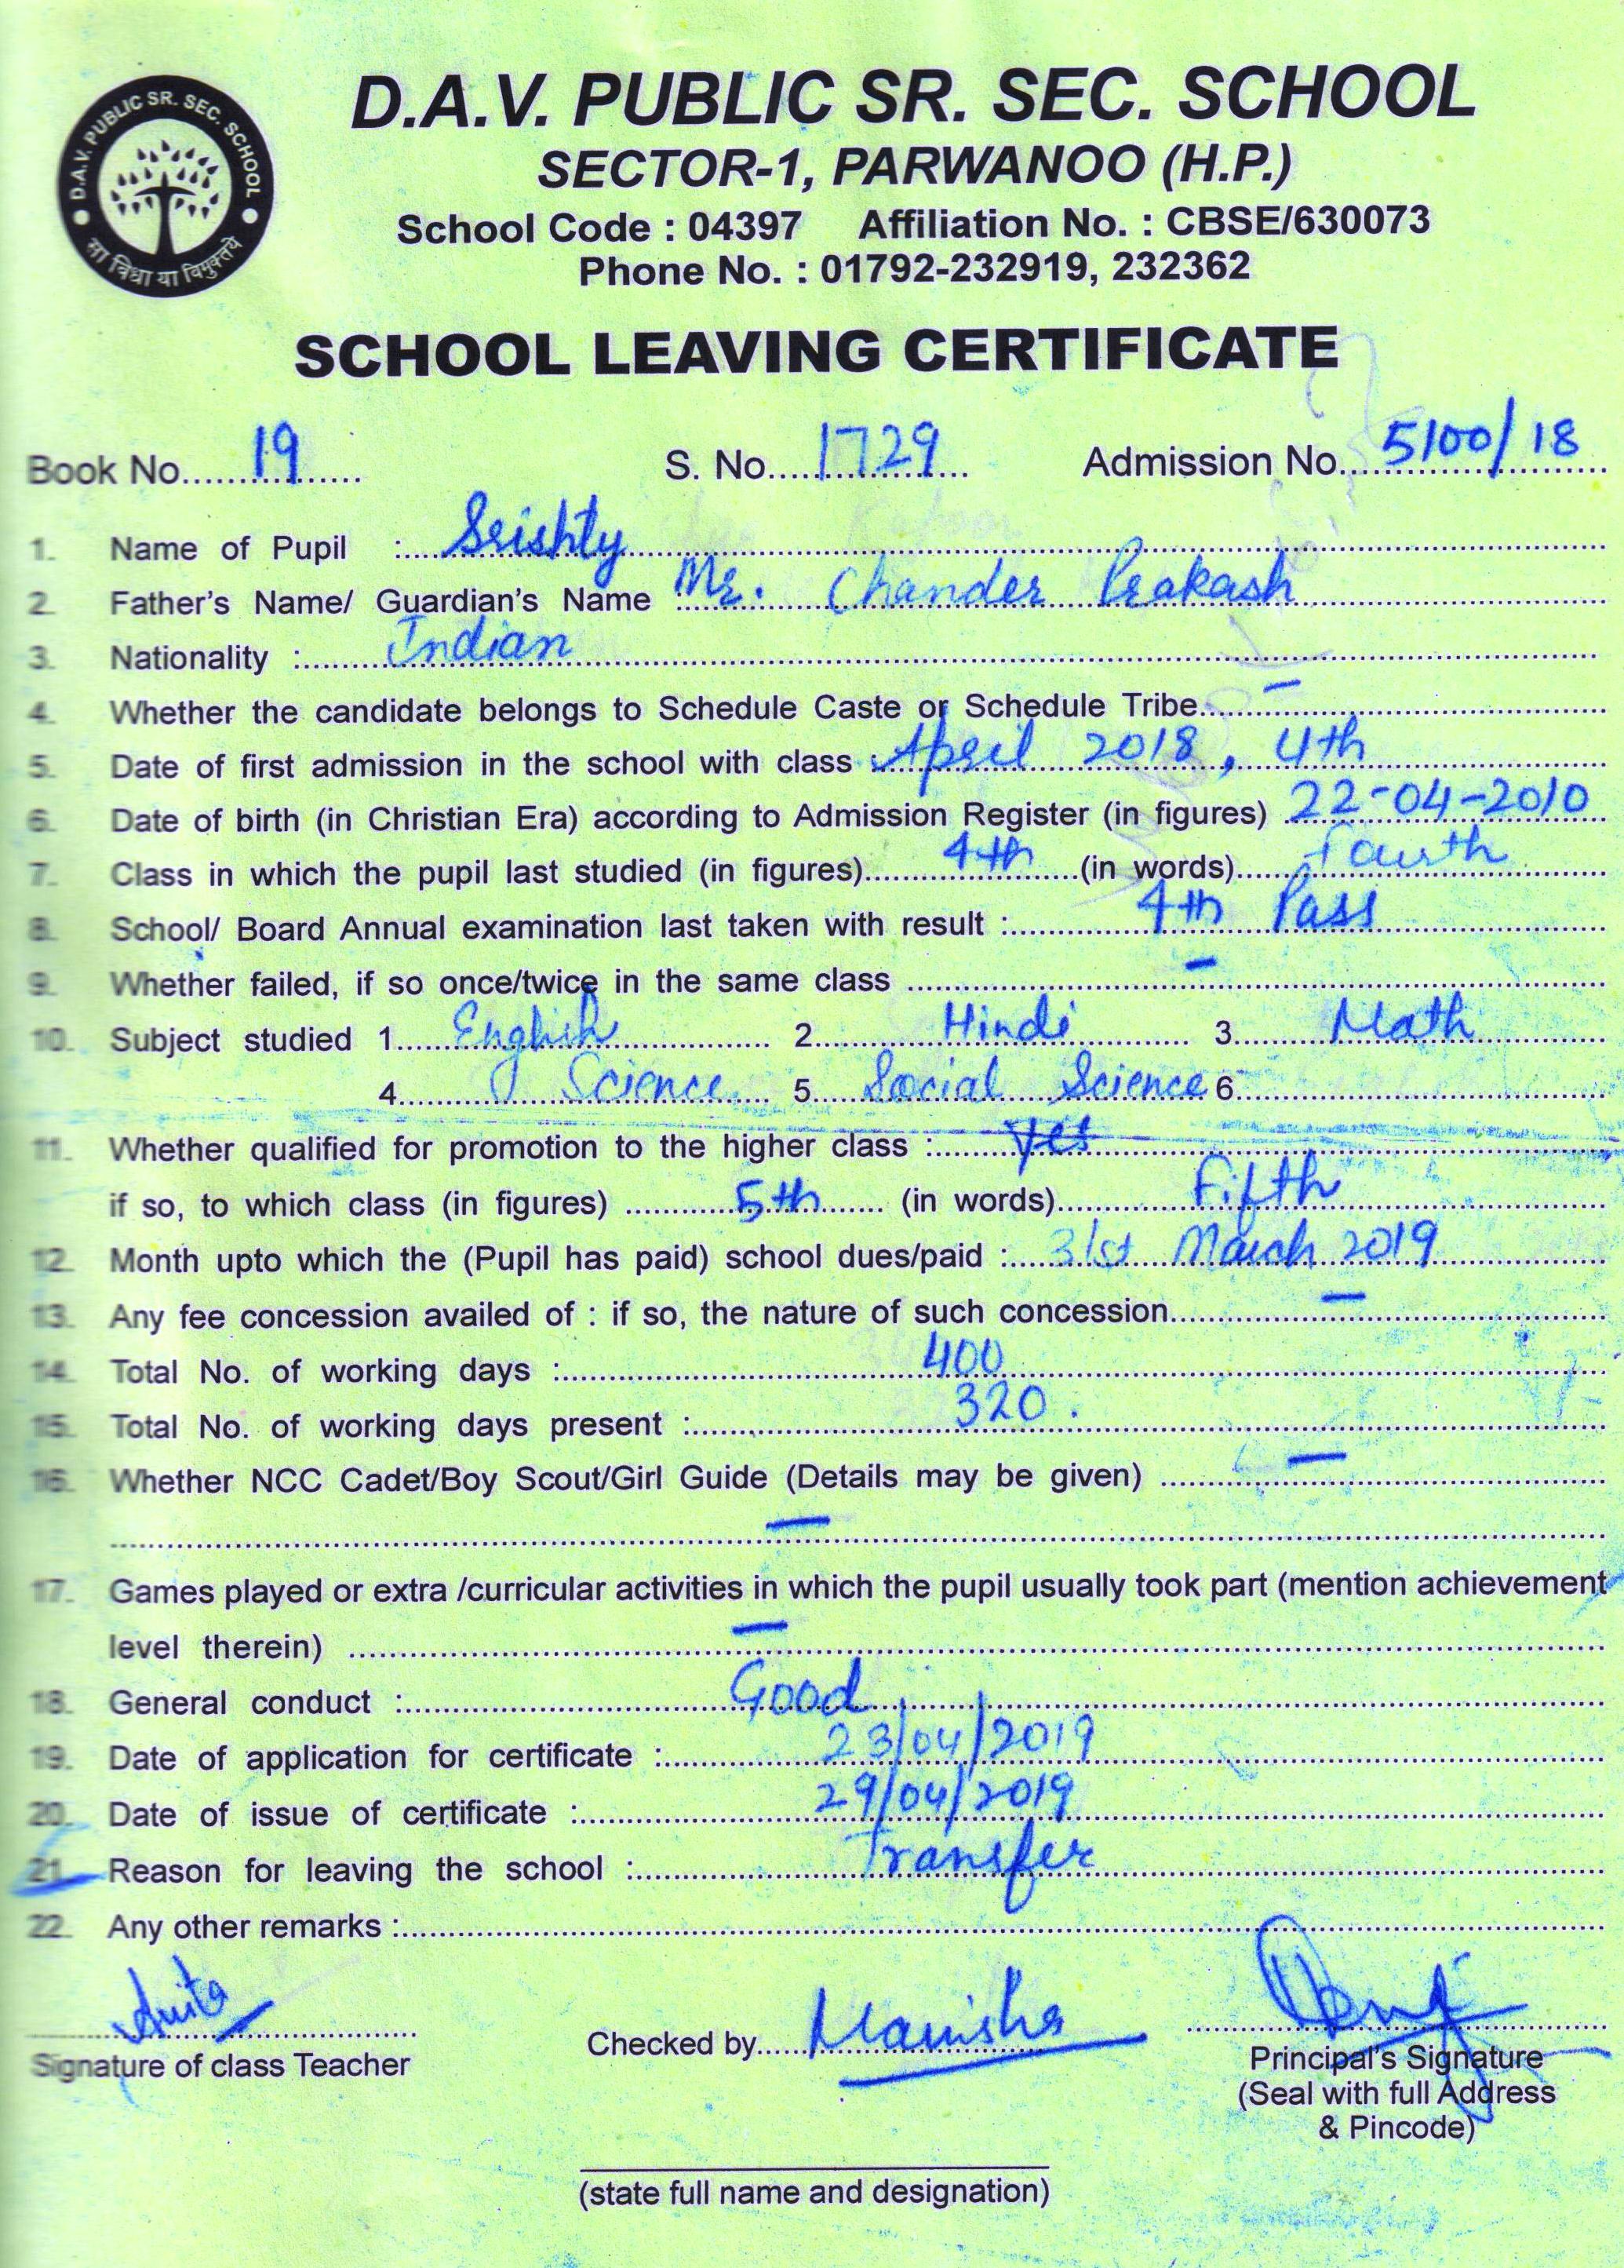 D.A.V. PUBLIC SR. SEC. SCHOOL
सा विद्या या विमुक्तये
D.A.V. PUBLIC SR. SEC. SCHOOL
SECTOR-1, PARWANOO (H.P.)
School Code : 04397 Affiliation No. : CBSE/630073
Phone No. : 01792-232919, 232362
SCHOOL LEAVING CERTIFICATE
Book No. 19 S. No. 1729 Admission No. 5100/18
1. Name of Pupil : Srishty
2. Father's Name/ Guardian's Name Mr. Chander Prakash
3. Nationality : Indian
4. Whether the candidate belongs to Schedule Caste or Schedule Tribe —
5. Date of first admission in the school with class : April 2018, 4th
6. Date of birth (in Christian Era) according to Admission Register (in figures) 22-04-2010
7. Class in which the pupil last studied (in figures) 4th (in words) Fourth
8. School/ Board Annual examination last taken with result : 4th Pass
9. Whether failed, if so once/twice in the same class —
10. Subject studied 1. English 2. Hindi 3. Math
4. Science 5. Social Science 6.
11. Whether qualified for promotion to the higher class : Yes
if so, to which class (in figures) 5th (in words) Fifth
12. Month upto which the (Pupil has paid) school dues/paid : 31st March 2019
13. Any fee concession availed of : if so, the nature of such concession —
14. Total No. of working days : 400
15. Total No. of working days present : 320.
16. Whether NCC Cadet/Boy Scout/Girl Guide (Details may be given) —
—
17. Games played or extra /curricular activities in which the pupil usually took part (mention achievement
level therein) —
18. General conduct : Good
19. Date of application for certificate : 23/04/2019
20. Date of issue of certificate : 29/04/2019
21. Reason for leaving the school : Transfer
22. Any other remarks :
Anita
Signature of class Teacher
Checked by Manisha
Principal's Signature
(Seal with full Address
& Pincode)
(state full name and designation)